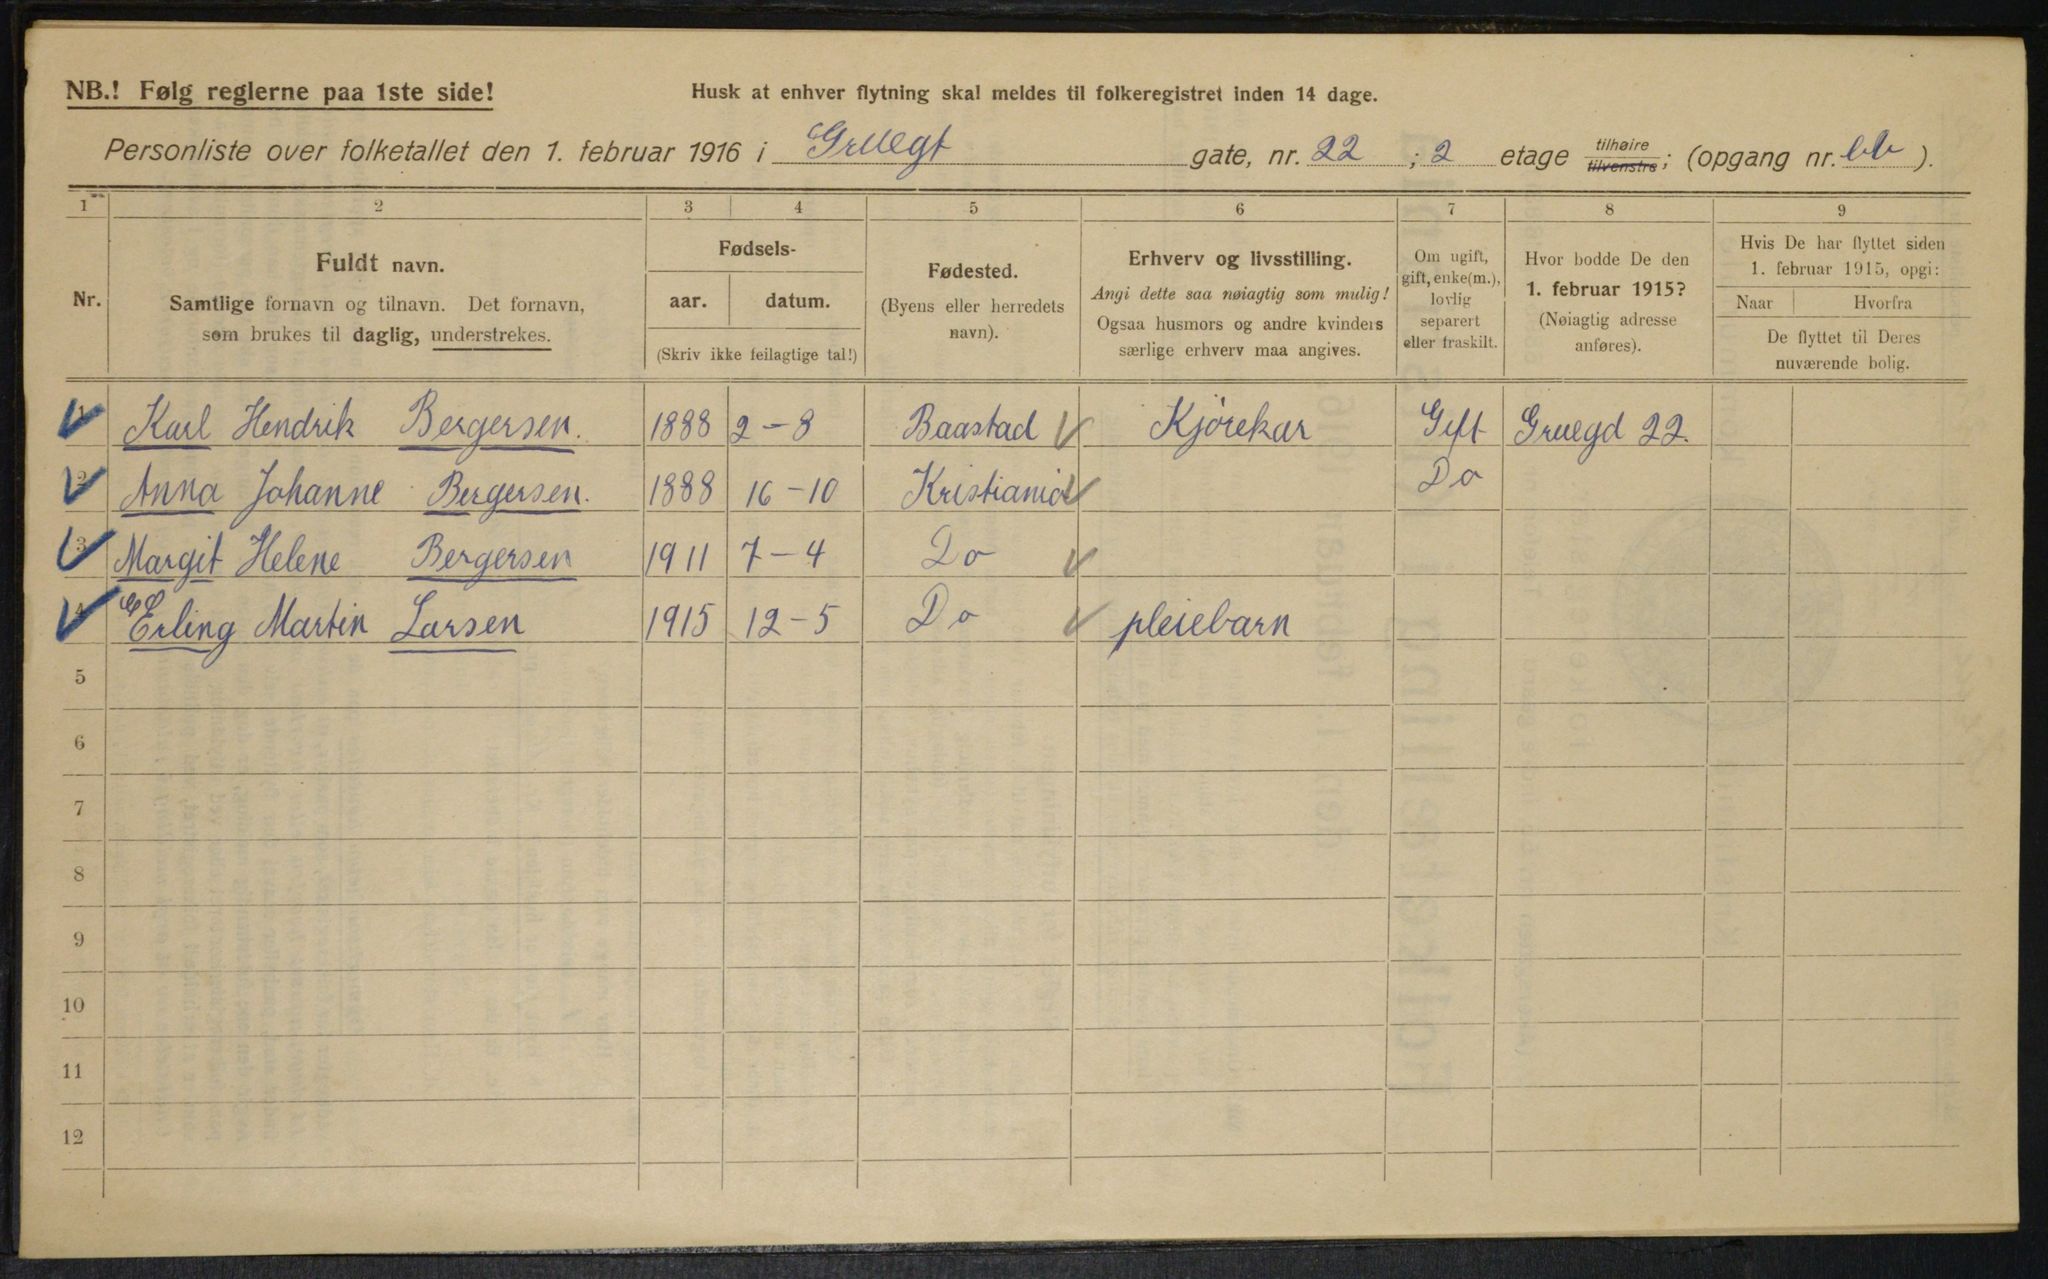 NB.! Følg reglerne paa 1ste side!
Husk at enhver flytning skal meldes til folkeregistret inden 14 dage.
Personliste over folketallet den 1. februar 1916 i Gruegt gate, nr. 22 ; 2 etage tilhøire tilvenstre ; (opgang nr. ).
1 2 3 4 5 6 7 8 9
Nr.
Fuldt navn.
Samtlige fornavn og tilnavn. Det fornavn,
som brukes til daglig, understrekes.
Fødsels-
aar. datum.
(Skriv ikke feilagtige tal!)
Fødested.
(Byens eller herredets
navn).
Erhverv og livsstilling.
Angi dette saa nøiagtig som mulig!
Ogsaa husmors og andre kvinders
særlige erhverv maa angives.
Om ugift,
gift, enke(m.),
lovlig
separert
eller fraskilt.
Hvor bodde De den
1. februar 1915?
(Nøiagtig adresse
anføres).
Hvis De har flyttet siden
1. februar 1915, opgi:
Naar Hvorfra
De flyttet til Deres
nuværende bolig.
1 Karl Hendrik Bergersen. 1888 2-8 Baastad Kjørekar Gift Gruegd 22.
2 Anna Johanne Bergersen. 1888 16-10 Kristiania Do
3 Margit Helene Bergersen 1911 7-4 Do
4 Erling Martin Larsen 1915 12-5 Do pleiebarn
5
6
7
8
9
10
11
12